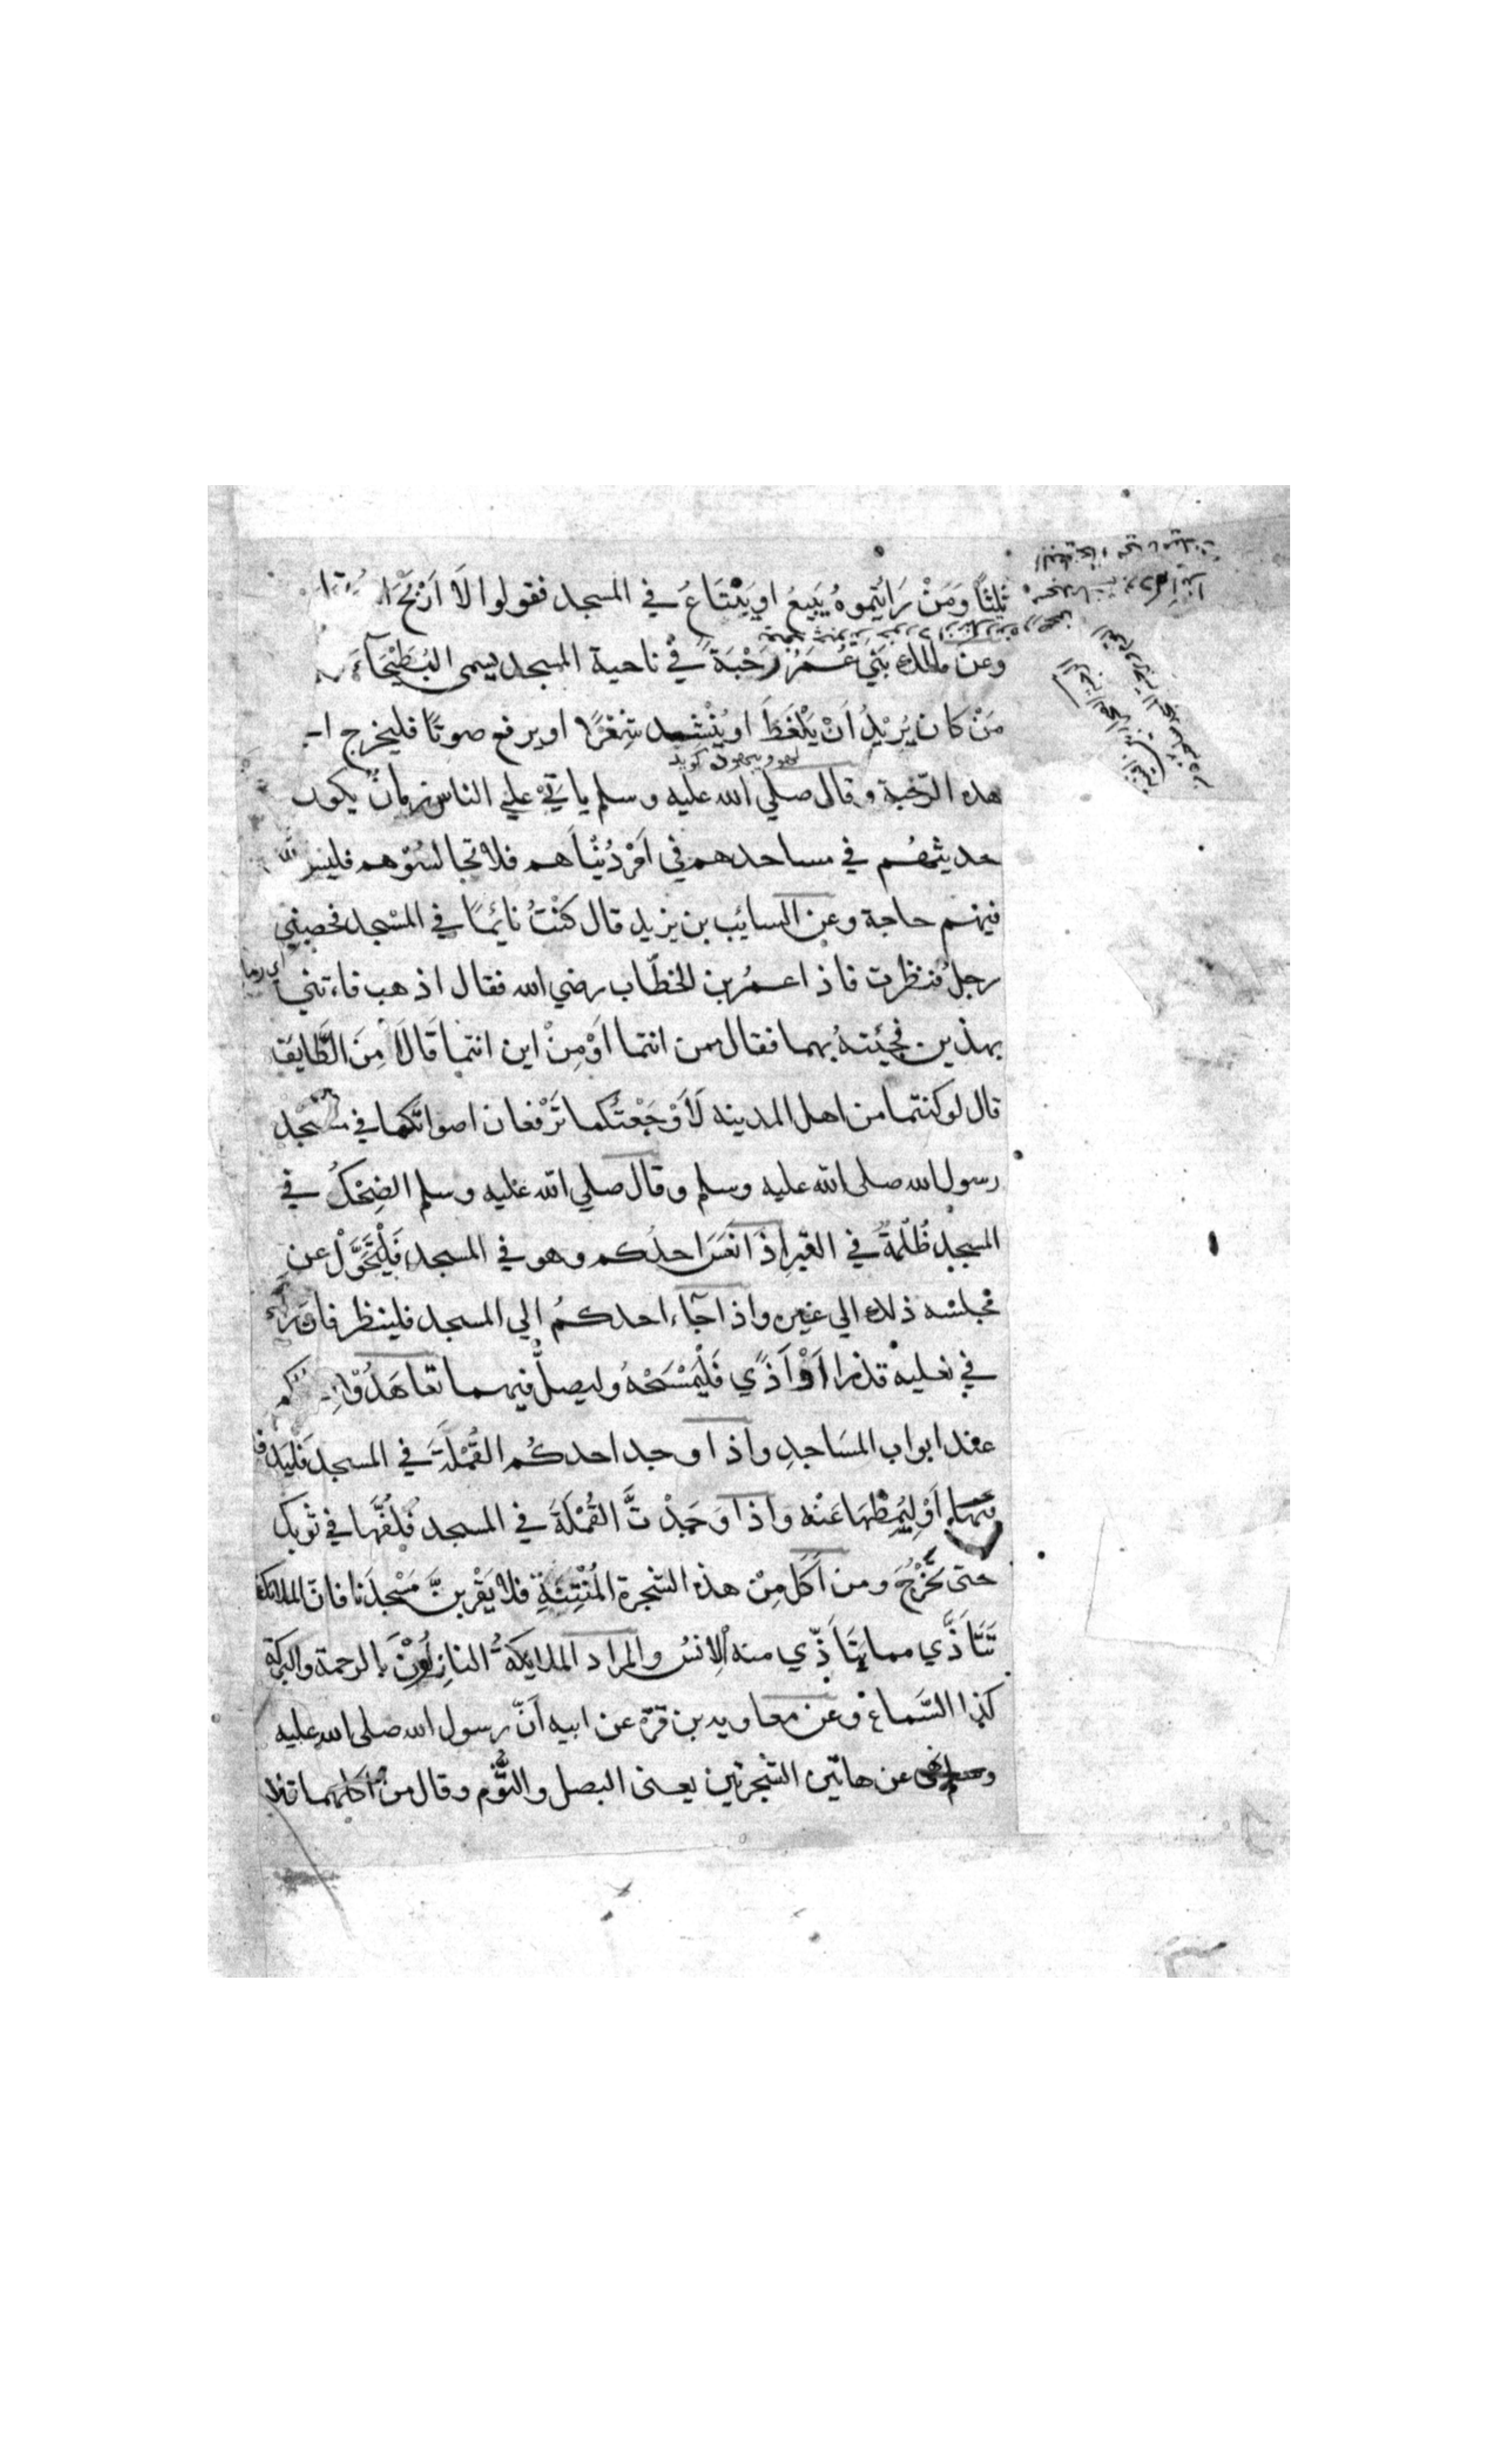 ثلثاً وَمَنْ رَاَيْتُموهُ يَبِيعُ او يَبْتَاعُ في المسجد فقولوا لَا اَرْبَحَ
وعن مالك بَنَي عُمَرُ رَحْبَةً في ناحية المسجد يسمى البُطَيْحَآءَ
مَنْ كان يُرِيْدُ اَنْ يَلْغَطَ او يُنْشِد شِعْرًا او يرفع صوتًا فليخرج
هذه الرّحْبة وقال صلي الله عليه وسلم ياتيْ علي الناس زمانٌ يكون
حديثهُم في مساجدهم في اَمْر دُنْيَاهم فلا تجالسُوْهم فليس لله
فيهم حاجة وعن السايُب بن يزيد قال كُنْتُ نايُمًا في المسْجد فحصبني
رجلٌ فنظرت فاذا عمرُ بن الخطّاب رضي الله فقال اذهب فاءتني
بهذين فجيْتهُ بهما فقال ممن انتما اَوْ مِنْ اين انتما قَالَا مِنَ الطَّايِف
قال لو كنتما من اهل المدينه لَاَوْجَعْتُكما تَرْفعان اصواتَكما في مسْجد
رسول الله صلى الله عليه وسلم وقال صلي الله عليه وسلم الضِحْكُ في
المسجد ظُلْمَةٌ في القبر اِذَا نَعَسَ احدُكم وهو في المسجد فَلْيَتَحَوَّلْ عن
مجلسه ذلك الي غيره واذا جآء احدكمُ الي المسجد فلينظر فان رَاَي
في نعليه قذرا اَوْ اَذًي فَلْيَمْسَحْهُ وليصلّ فيهما تعَاهَدُوْا
عند ابواب المسَاجدِ واذا وجد احدكُم القُمْلَةَ في المسجد
اَوْ لِيُمِطْهَا عَنْه واذا وَجَدْتَّ القُمْلَةَ في المسجد فَلُفَّها في ثوبك
حتى تَخْرُجَ ومن اَكَلَ مِنْ هذه الشجرة المُنْتِنَةِ فلا يَقْربنَّ مَسْجدَنا فانّ الملائكة
تَتَاَذَّي مما يَتَاَذّي منه الاِنسُ والمراد الملايكةُ النازِلُوْنَ بالرحمة والبركة
كذا السَّماع وعن معاوية بن قرّة عن ابيه اَنّ رسول الله صلى الله عليه
وسلم نهى عن هاتين الشجرتين يعنى البصل والثُّوْم وقال من اكلهما فلا